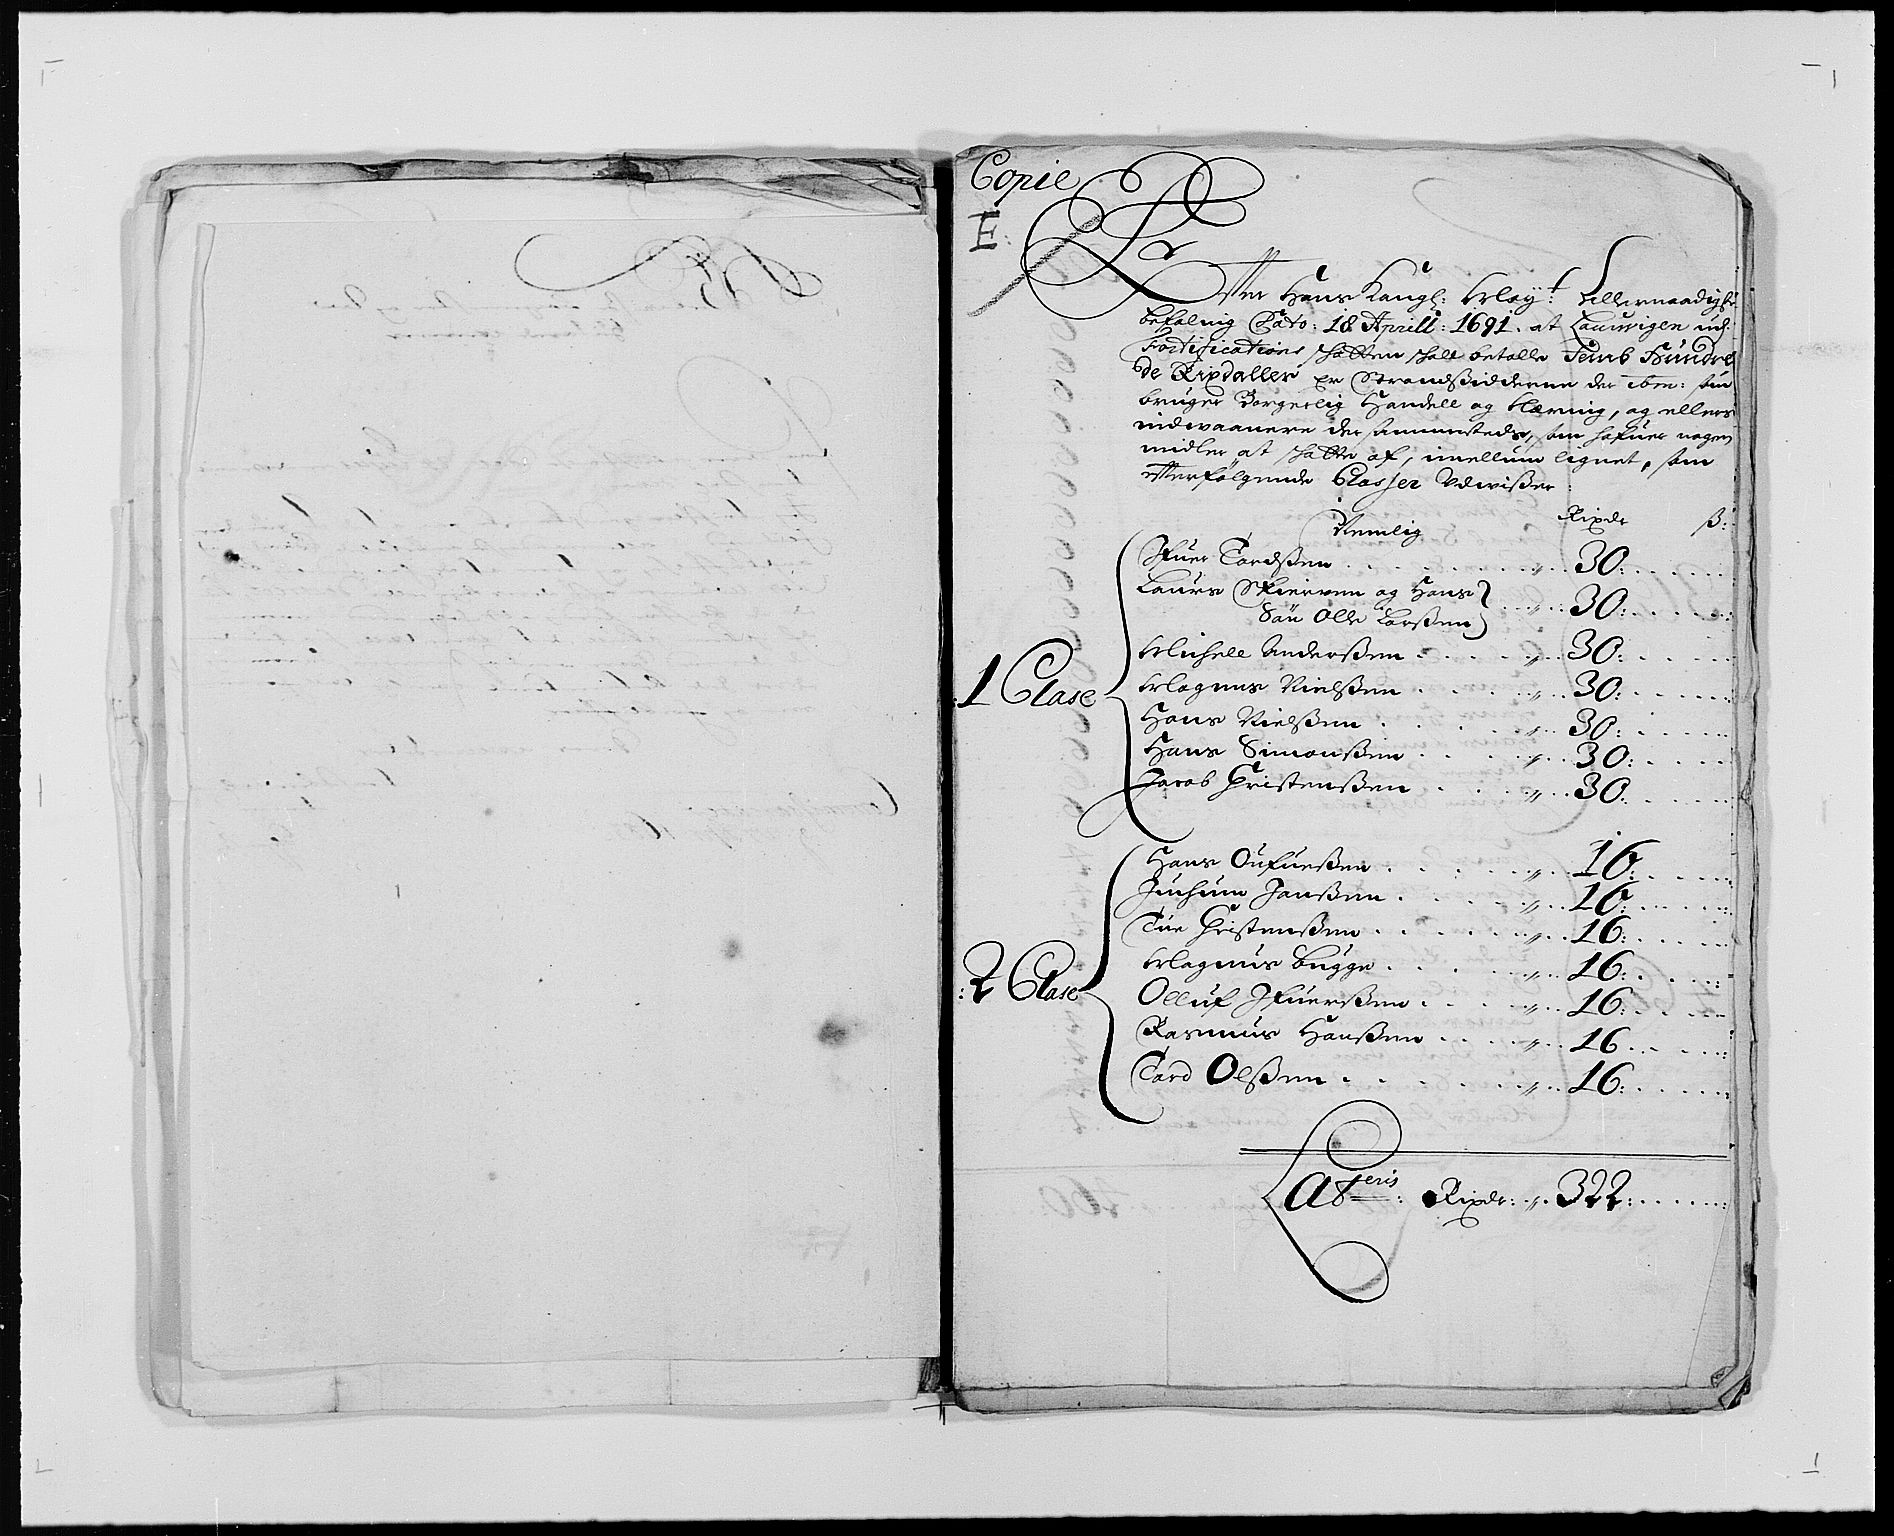 Copie
E:
Effter Hans Kongl: Mayt: Allernaadigste
befaling Dato: 18 Aprill: 1691. at Laurvigen udj
Fortifications schatten schall betalle Femb Hundre
de Rixdaller er Strandsidderne der ibm: som
bruger Borgerlig Handell og Næring, og ellers
indvaanere der sammesteds, som hafuer nogen
midler at schatte af, imellum lignet, som
effterfølgende Classer Udvißer
Nemlig Rixdr ß:
1 Clase
Ifuer Tordßen 30:
Laurs Skierven og Hans
Søn Olle Larßen 30:
Michell Anderßen 30:
Magnus Nielßen 30:
Hans Nielßen 30:
Hans Simonßen 30:
Jacob Christenßen 30:
:2 Clase
Hans Oufueßen 16:
Jochum Janßen 16:
Tue Christenßen 16:
Magnus Bugge 16:
Olluf Ifuerßen 16:
Rasmus Hanßen 16
Tord Olßen 16:
Lateris Rixdr: 322: